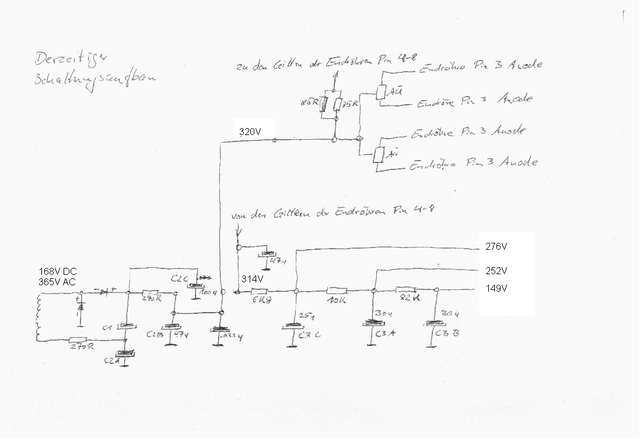 Derzeitiger
Schaltungsaufbau
zu den Gittern der Endröhren Pin 4-8
Endröhre Pin 3 Anode
Endröhre Pin 3 Anode
Endröhre Pin 3 Anode
Endröhre Pin 3 Anode
AÜ
AÜ
320V
von den Gittern der Endröhren Pin 4-8
47µ
276V
252V
149V
314V
6K8
10K
82K
168V DC
365V AC
C2C
100µ
270R
C1
C2B
47µ
25µ
C3C
30µ
C3A
30µ
C3B
270R
C2A